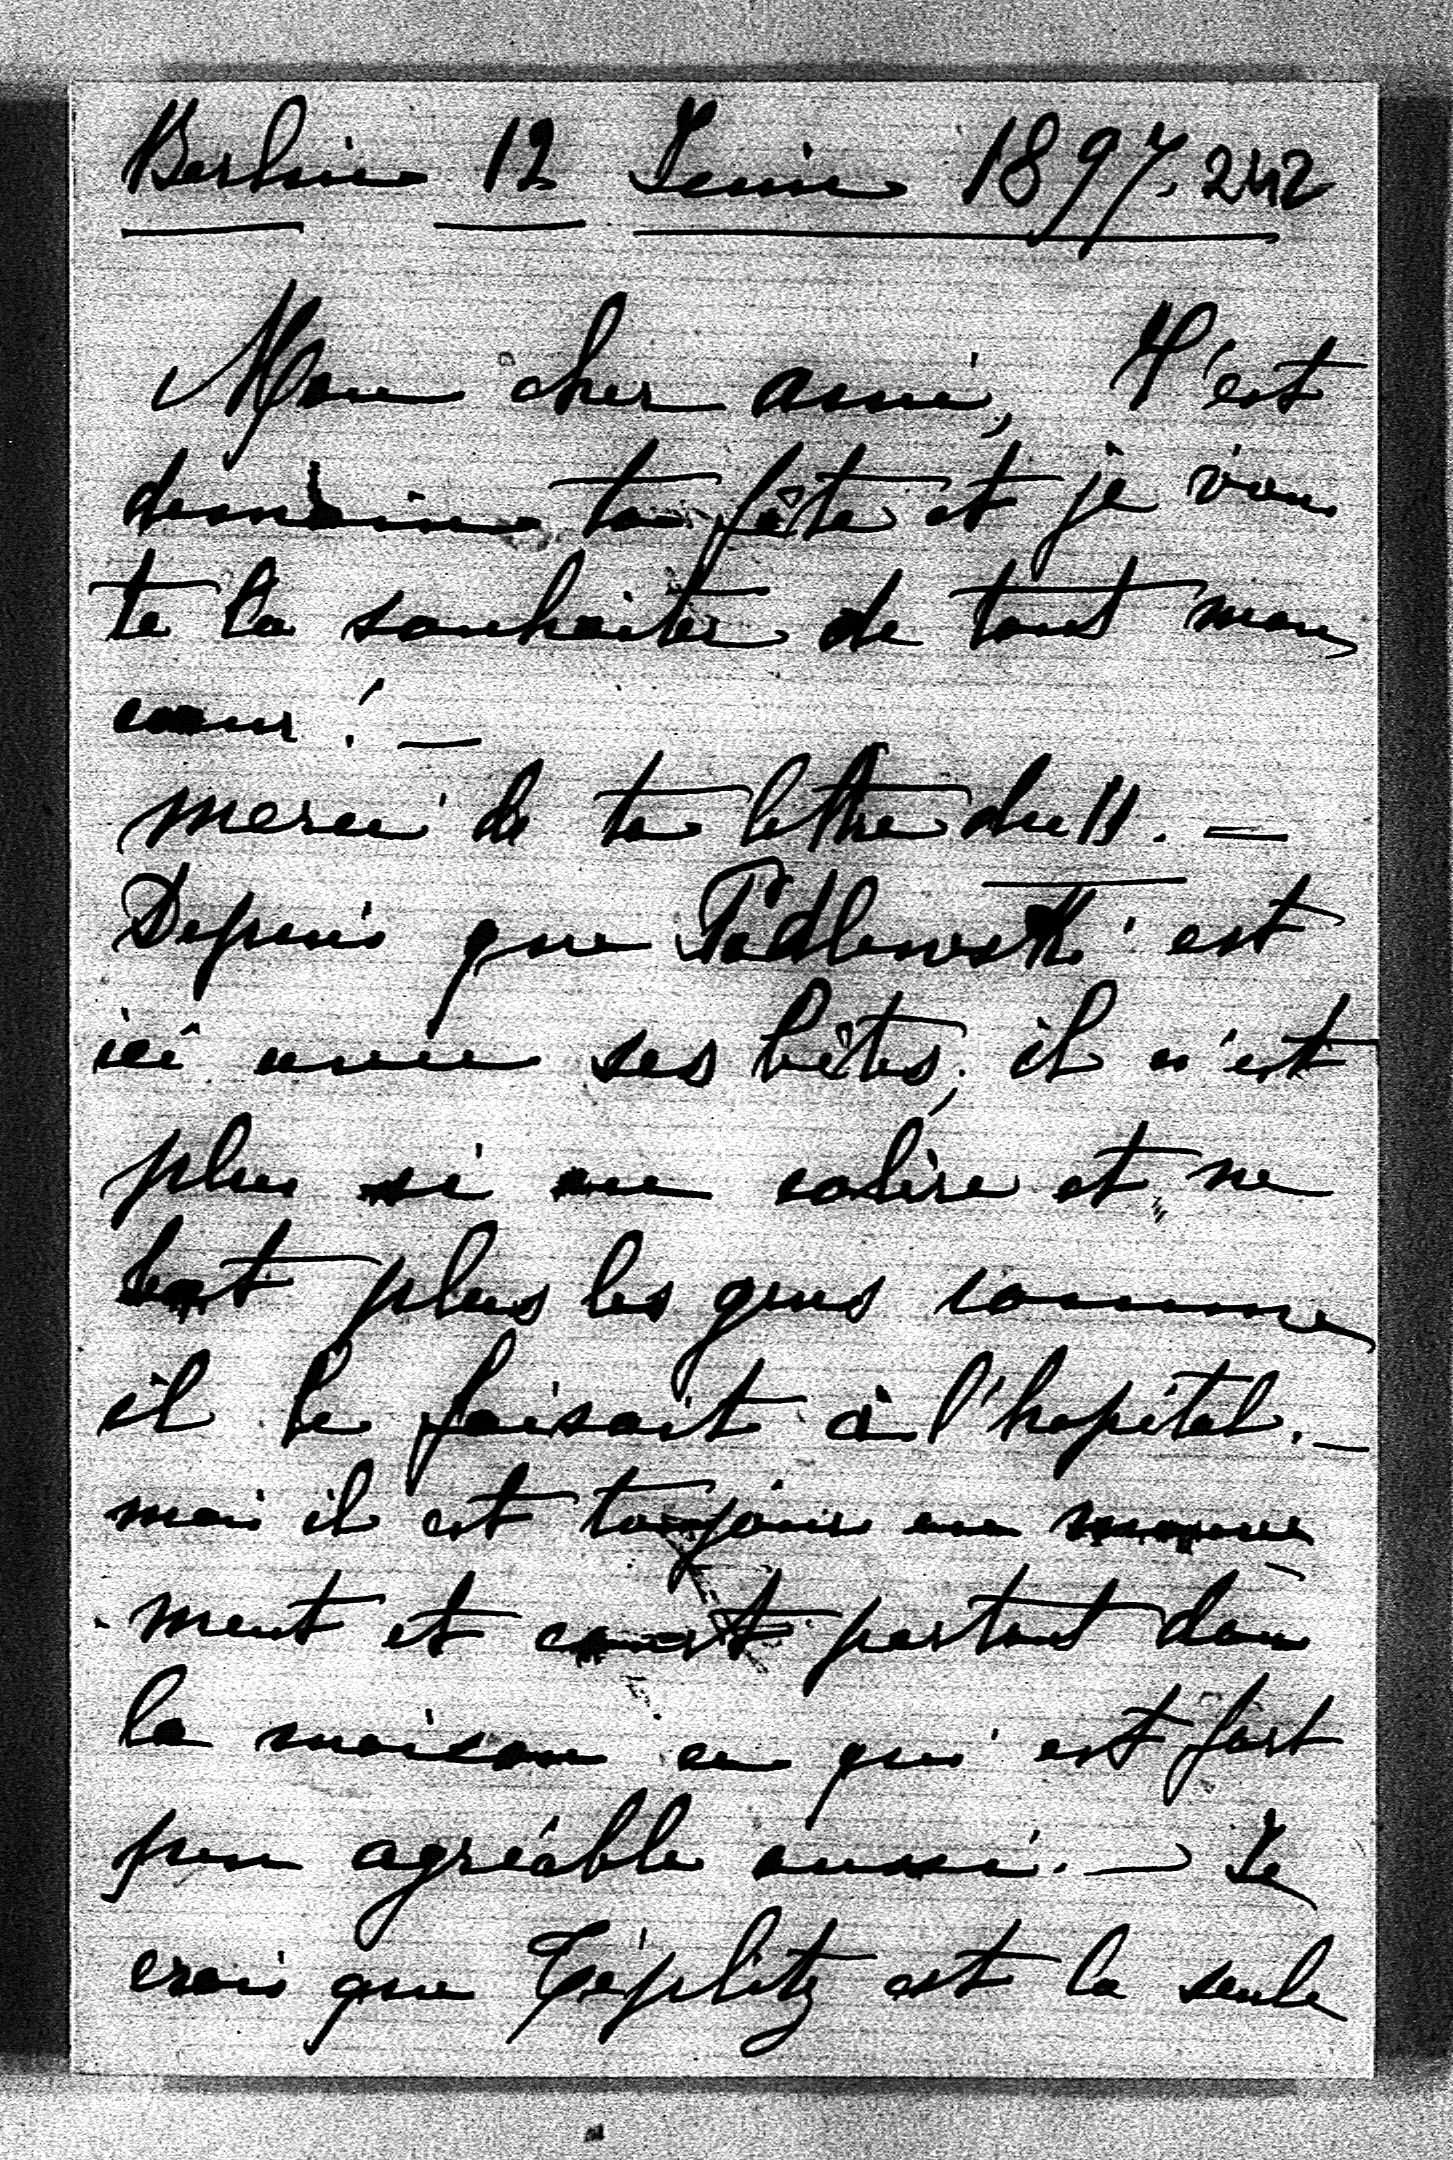 Berlin 12 Juin 1897. 242
Mon cher ami, C'est
demain ta fête et je veux
te la souhaiter de tout mon
cœur ! —
Merci de ta lettre du 11. —
Depuis que Podlewski est
ici avec ses bêtes, il n'est
plus si en colère et ne
bat plus les gens comme
il le faisait à l'hopital. —
mais il est toujours en mouve
ment et court partout dans
la maison ce qui est fort
peu agréable aussi. — Je
crois que Téplitz est la seule